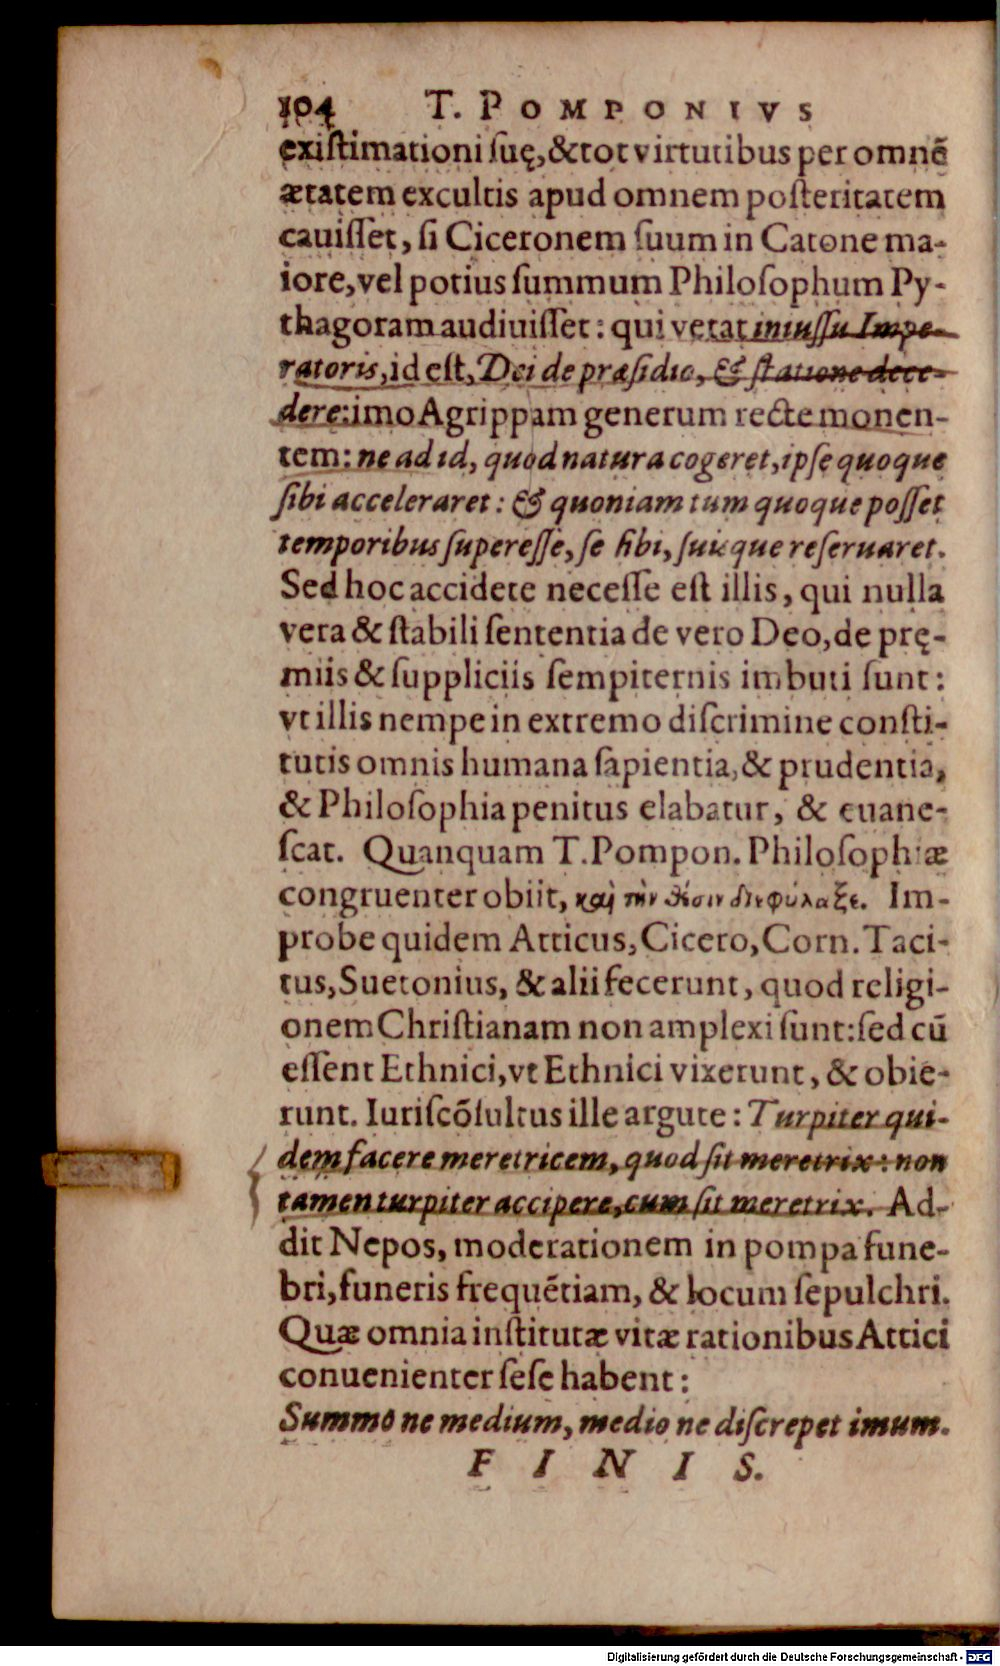 104 T. POMPONIVS
existimationi suę, & tot virtutibus per omnẽ
ætatem excultis apud omnem posteritatem
cauisset, si Ciceronem suum in Catone ma-
iore, vel potius summum Philosophum Py-
thagoram audiuisset: qui vetat iniussu Impe-
ratoris, id est, Dei de præsidio, & statione dece-
dere: imo Agrippam generum recte monen-
tem: ne ad id, quod natura cogeret, ipse quoque
sibi acceleraret: & quoniam tum quoque posset
temporibus superesse, se sibi, suisque reseruaret.
Sed hoc accidere necesse est illis, qui nulla
vera & stabili sententia de vero Deo, de prę-
miis & suppliciis sempiternis imbuti sunt:
vt illis nempe in extremo discrimine consti-
tutis omnis humana sapientia, & prudentia,
& Philosophia penitus elabatur, & euane-
scat. Quanquam T. Pompon. Philosophiæ
congruenter obiit, καὶ τὴν θέσιν διεφύλαξε. Im-
probe quidem Atticus, Cicero, Corn. Taci-
tus, Suetonius, & alii fecerunt, quod religi-
onem Christianam non amplexi sunt: sed cũ
essent Ethnici, vt Ethnici vixerunt, & obie-
runt. Iuriscõsultus ille argute: Turpiter qui-
dem facere meretricem, quod sit meretrix: non
tamen turpiter accipere, cum sit meretrix. Ad-
dit Nepos, moderationem in pompa fune-
bri, funeris frequẽtiam, & locum sepulchri.
Quæ omnia institutæ vitæ rationibus Attici
conuenienter sese habent:
Summo ne medium, medio ne discrepet imum.
FINIS.
Digitalisierung gefördert durch die Deutsche Forschungsgemeinschaft - DFG